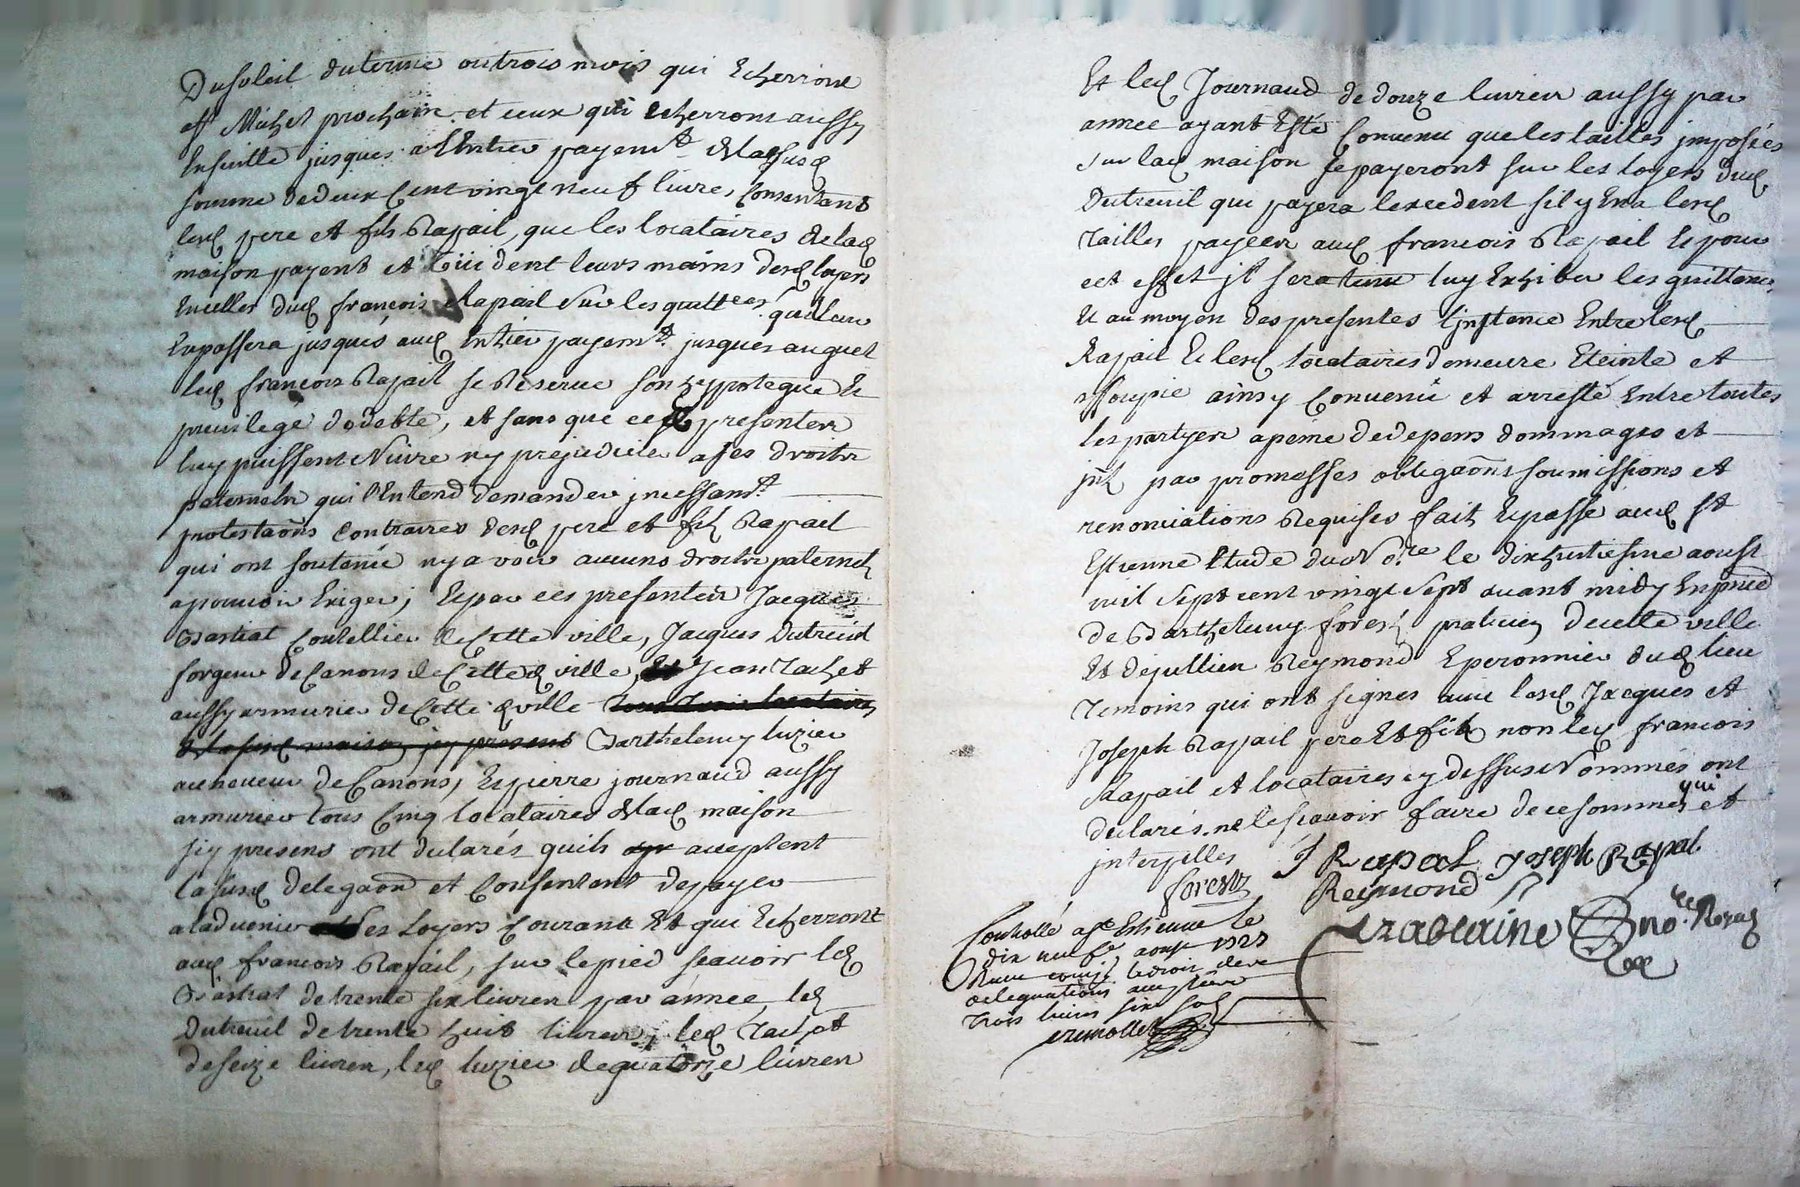 Dusoleil duterme outrois mois qui Echerront
a St Michel prochain et ceux qui echerront aussy
Ensuitte jusques a l'Entier payemt. delad. susd
somme de deux Cent vingt neuf livres, Consentant
lesd pere et fils Rapail, que les locataires delad
maison payent et vuident leurs mains desd loyers
Encelles dud francois Rapail sur les quittces. quilleur
Enpassera jusques aud Entier payemt. jusques auquel
led francois Rapail se Reserve son hyppoteque Et
privilege dodebte, et sans que ces presentes
luy puissent Nuire ny prejudicier ases droits
paternels qui Entend demander incessamt.
protestaons Contraires desd pere et fils Rapail
qui ont soutenu ny avoir aucuns droits paternels
apouvoir Exiger; Etpar ces presentes Jacques
Bastiat Coutellier deCette ville, Jacques Dutreuil
forgeur deCanons deCette d ville, Jean Tachet
aussy armurier deCette d ville tous trois locataires
delasusd maison jcy presens Barthelemy luzier
acheveur deCanons, Etpierre journaud aussy
armurier tous Cinq locataires delad maison
jcy presens ont declarés quils acceptent
lasusd delegaon et Consentent depayer
aladvenir les loyers Courants Et qui Echerront
aud francois Rapail, sur lepied scavoir led
Bastiat detrente six livres par année, led
Dutreuil detrente huit livres, led Tachet
deseize livres, led luzier dequatorze livres
Et led Journaud dedouze livres aussy par
année ayant Esté Convenu que les tailles jmposées
sur lad maison sepayeront sur les loyers dud
Dutreuil qui payera lexcedent sil y Ena lesd
Tailles payées aud francois Rapail Et pour
cet effet jl sera tenu luy Exhiber les quittances
Et au moyen des presentes Linstance Entre lesd
Rapail Et lesd locataires demeure Eteinte et
assoupie ainsy Convenu et arresté Entre toutes
les partyes apeine dedepens dommages et
jnts par promesses obligaons soumissions et
renonciations Requises fait Etpassé aud St
Estienne Etude du Nore le dixhuitiesme aoust
mil sept cent vingt sept avant midy Enpnce
de Barthelemy forest praticien decette ville
Et dejullien Reymond Eperonnier dud lieu
Temoins qui ont signés avec lesd Jacques et
Joseph Rapail pere Et fils non led francois
Rapail et locataires cy dessus Nommés qui ont
declarés nele scavoir faire de cesommés et
jnterpellés J Rapal Joseph Rapal
forest Reymond
Cravaine nore Royal
Controllé a St Estienne le
dix neufe aoust 1727
delegations
Trois livres six sols